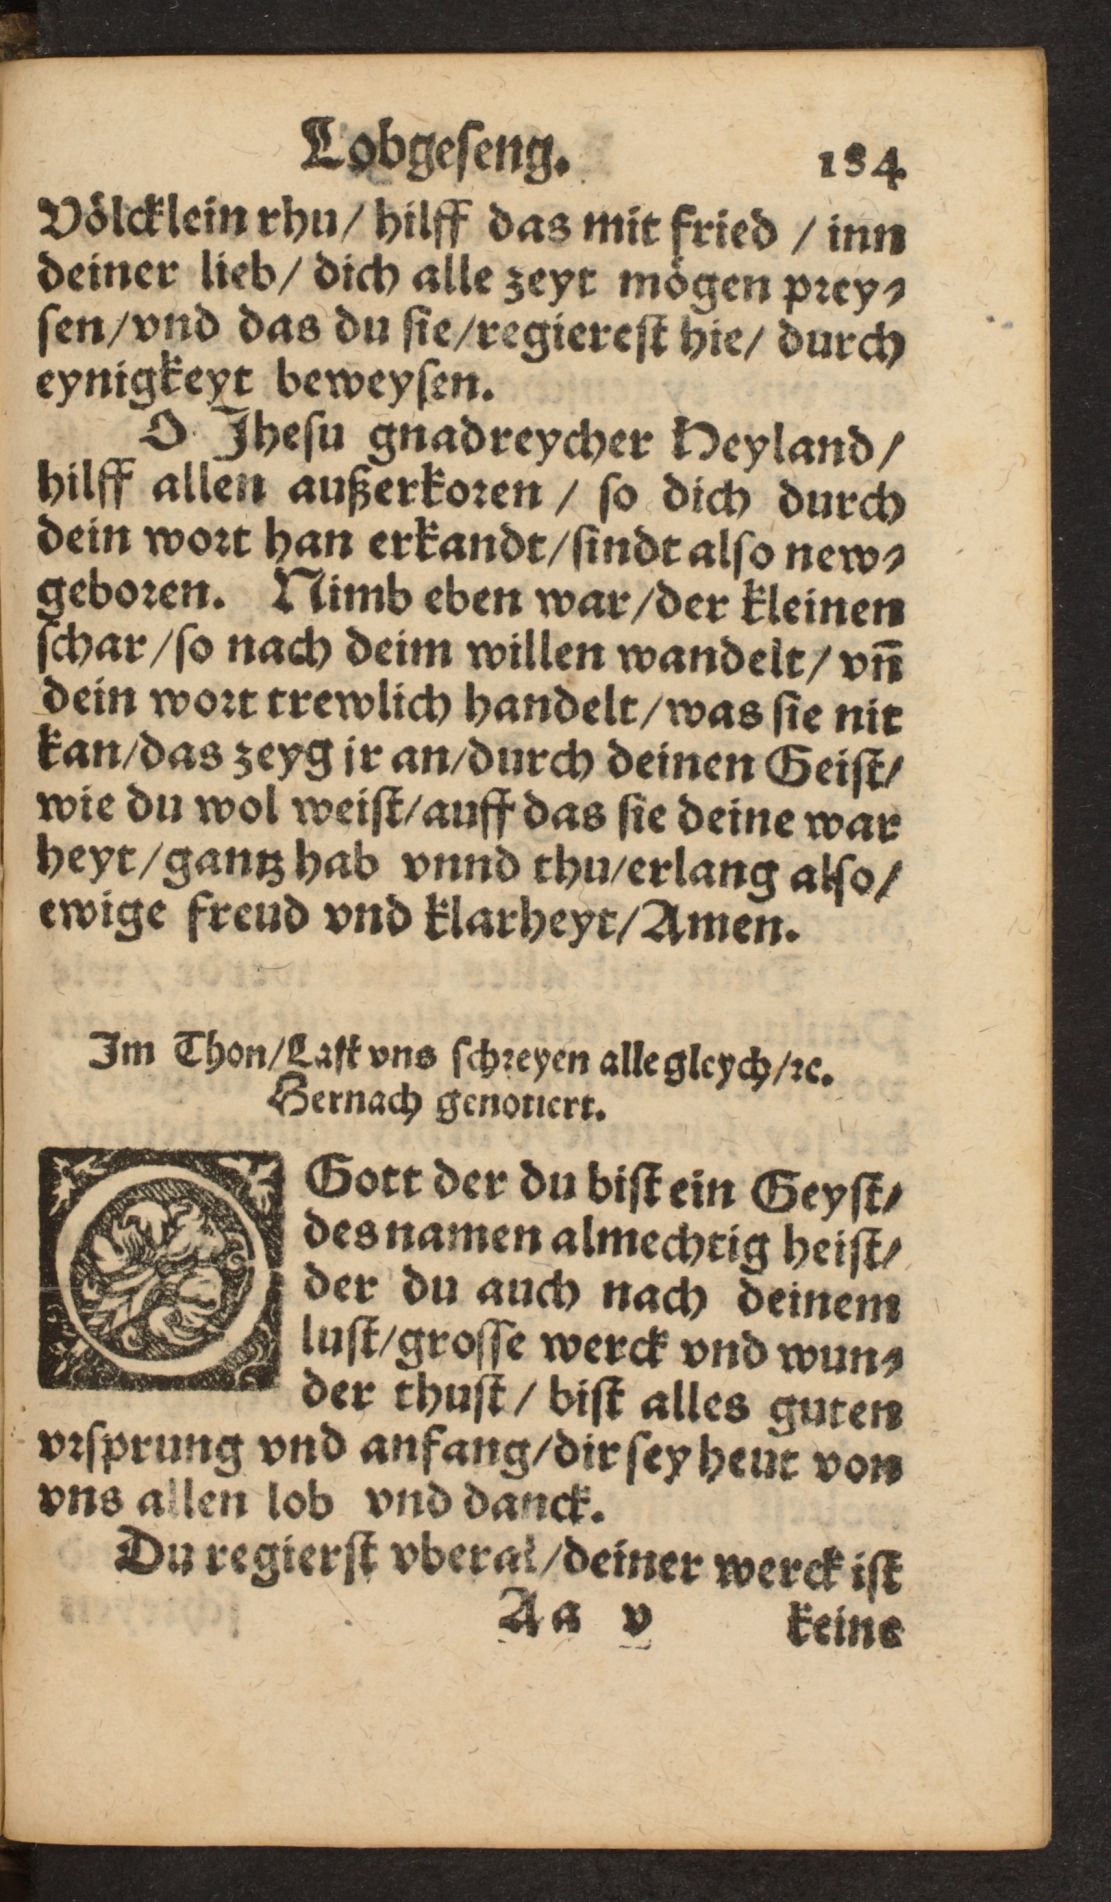 Lobgeseng. 184.
Völcklein rhu/ hilff das mit fried / inn
deiner lieb/ dich alle zeyt mögen prey⸗
sen/vnd das du sie/regierest hie/ durch
eynigkeyt beweysen.
O Jhesu gnadreycher Heyland/
hilff allen außerkoren / so dich durch
dein wort han erkandt/sindt also new⸗
geboren. Nimb eben war/der kleinen
schar/so nach deim willen wandelt/ vn̄
dein wort trewlich handelt/was sie nit
kan/das zeyg jr an/durch deinen Geist/
wie du wol weist/auff das sie deine war
heyt/gantz hab vnnd thu/erlang also/
ewige freud vnd klarheyt/Amen.
Im Thon/Last vns schreyen alle gleych/ꝛc.
Hernach genotiert.
O Gott der du bist ein Geyst/
des namen almechtig heist/
der du auch nach deinem
lust/grosse werck vnd wun⸗
der thust/ bist alles guten
vrsprung vnd anfang/dir sey heut von
vns allen lob vnd danck.
Du regierst vberal/deiner werck ist
Aa v keine